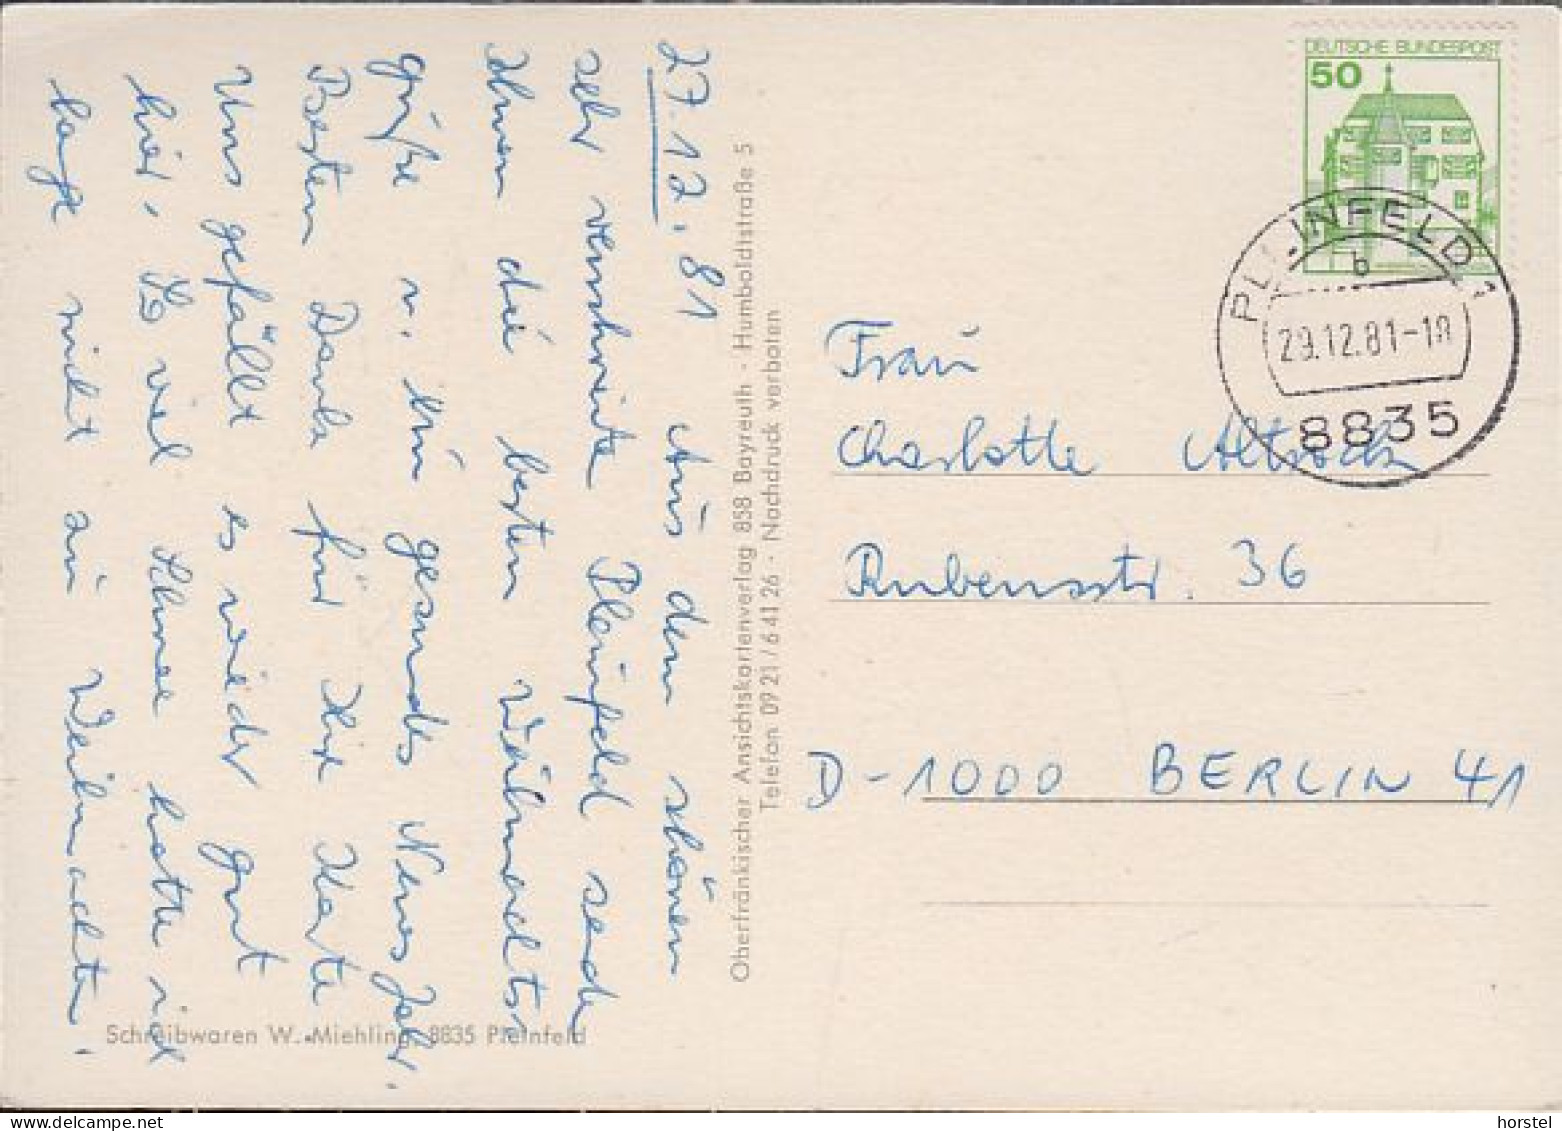 27.12.81 Aus dem schönen
sehr verschneite Pleinfeld sende
Ihnen die besten Weihnachts
grüße u. ein gesundes Neues Jahr.
Besten Dank für Ihre Karte
Uns gefällt es wieder gut
hier. So viel Schnee hatte ich
lage nicht zu Weihnachten.
Schreibwaren W. Miehling, 8835 Pleinfeld
Oberfränkischer Ansichtskartenverlag 858 Bayreuth - Humboldtstraße 5
Telefon 09 21 / 6 41 26 - Nachdruck verboten
DEUTSCHE BUNDESPOST
50
PLEINFELD 1
b
29.12.81-18
8835
Frau
Charlotte
Rubensstr. 36
D-1000 BERLIN 41
horstel © www.delcampe.net